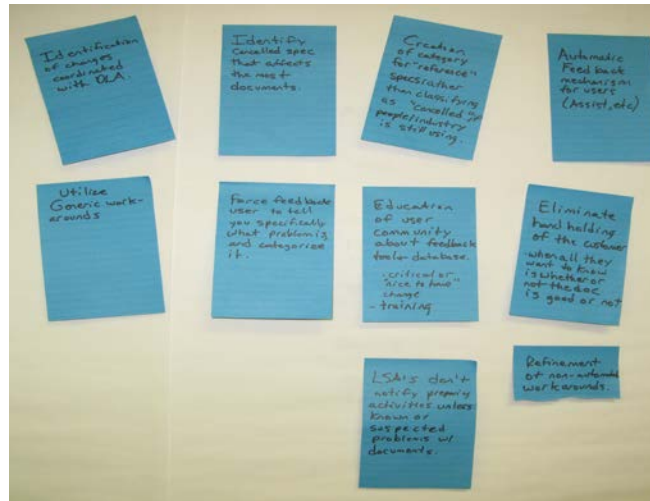 Identification
of changes
coordinated
with DLA.
Identify
Cancelled spec
that affects
the most
documents.
Creation
of category
for "reference"
specs rather
than classifying
as "cancelled", if
people/industry
is still using.
Automatic
Feedback
mechanism
for users
(Assist, etc)
Utilize
Generic work-
arounds
Force feedback
user to tell
you specifically
what problem is
and categorize
it.
Education
of user
community
about feedback
tool - database.
- critical or
"nice to have"
change
- training
Eliminate
hand holding
of the customer
- when all they
want to know
is whether or
not the doc
is good or not
LSA's don't
notify preparing
activities unless
known or
suspected
problems w/
documents.
Refinement
of non-automated
workarounds.